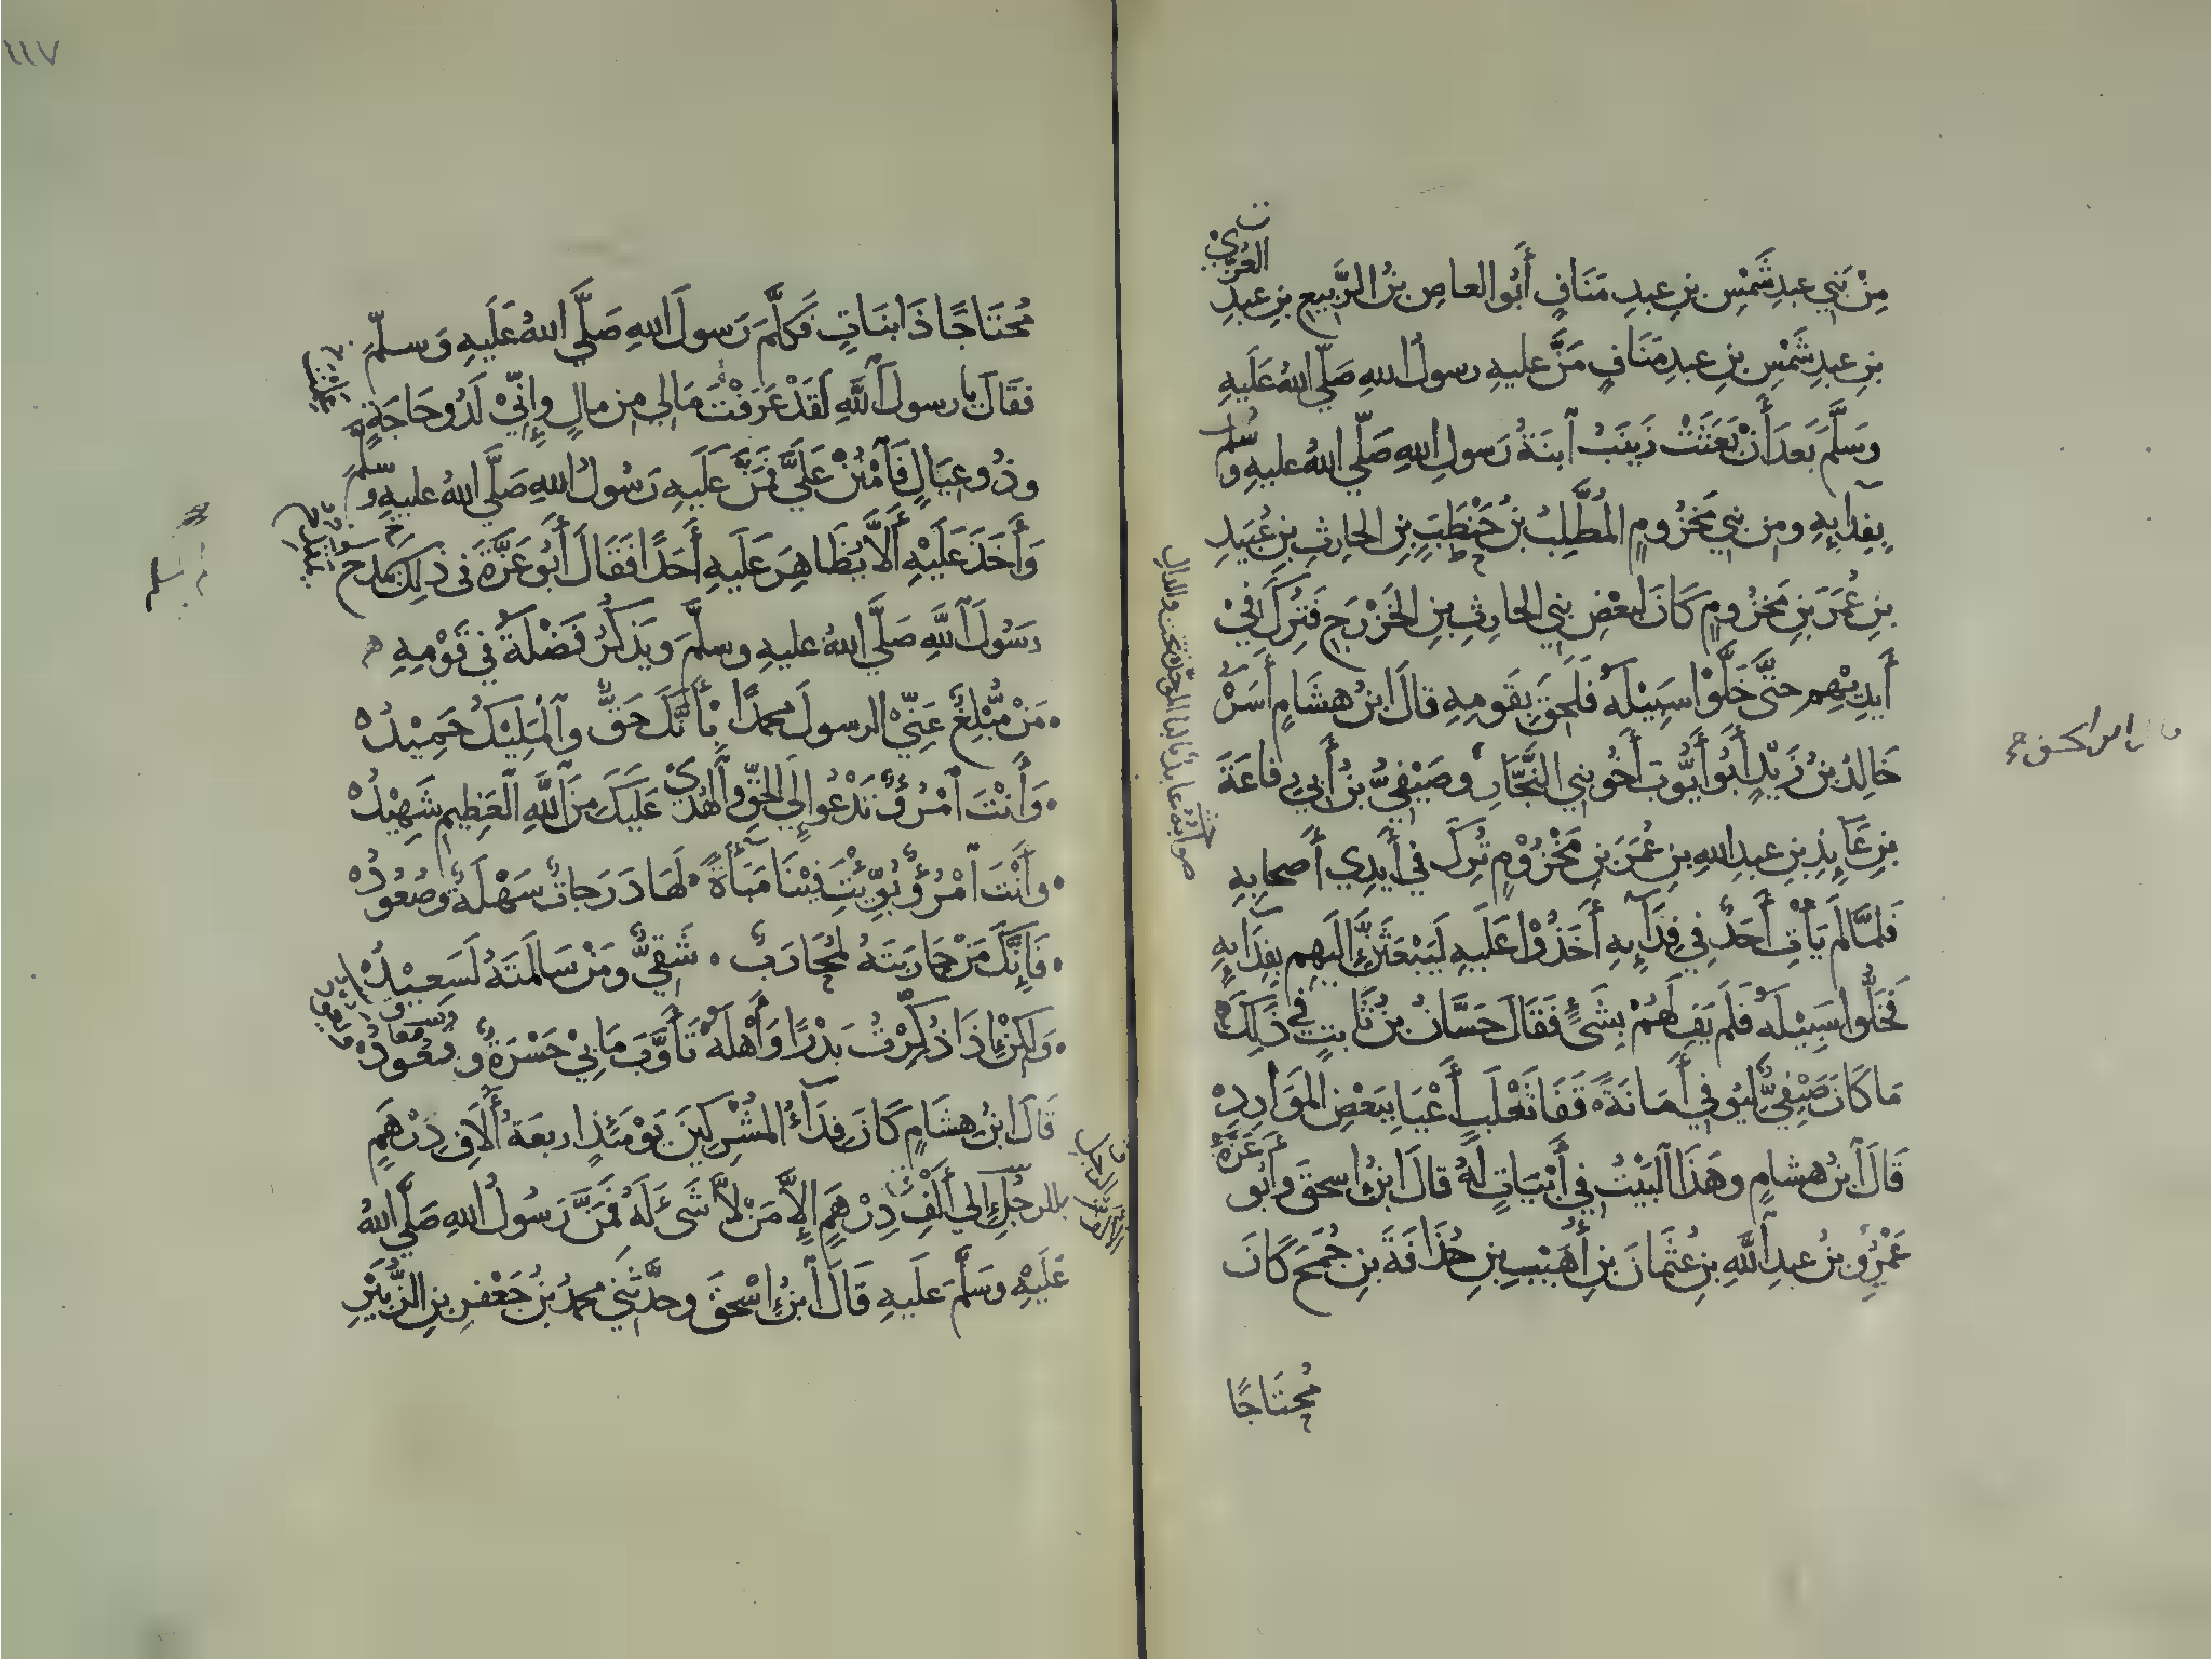 العُزَّى
مِنْ بَنِي عبدِ شَمْسِ بنِ عبدِ مَنَافٍ أَبُو العاصِ بنُ الرَّبِيعِ بنِ عبدِ
بنِ عبدِ شَمْسِ بنِ عبدِ مَنَافٍ مَنَّ عليهِ رسولُ اللهِ صَلَّى اللهُ عَلَيهِ
وَسَلَّمَ بَعدَ أَنْ بَعَثَتْ زَينَبُ ٱبنَةُ رَسولِ اللهِ صَلَّى اللهُ عليهِ وسلم
بِفِدَايِهِ ومِن بَنِي مَخزُومٍ المُطَّلِبُ بنُ حَنْطَبِ بنِ الحارِثِ بنِ عُبَيدِ
بنِ عُمَرَ بنِ مَخزُومٍ كَانَ لِبَعْضِ بَنِي الحارِثِ بنِ الخَزْرَجِ فَتُرِكَ فِي
أَيدِيهِم حتَّى خَلَّوْا سَبِيْلَهُ فَلَحِقَ بِقَومِهِ قالَ ابنُ هشَامٍ أَسَرَهُ
خَالِدُ بنُ زَيْدٍ أَبُو أَيُّوبَ أَخُو بَنِي النَّجَّارِ وصَيْفِيُّ بنُ أَبِي رِفاعَةَ
بنِ عَايِذِ بنِ عبدِ اللهِ بنِ عُمَرَ بنِ مَخْزُوْمٍ تُرِكَ في أَيدِي أَصحابِهِ
فَلمَّا لَم يَأْتِ أَحَدٌ فِي فِدَآيِهِ أَخَذُوْا عَلَيهِ لَيَبْعَثَنَّ إِلَيهِم بِفِدَايِهِ
فَخَلَّوا سَبِيْلَهُ فَلَم يَفِ لَهُمْ بِشَيءٍ فَقَالَ حَسَّانُ بنُ ثَابتٍ في ذَلِكَ
مَا كَانَ صَيْفِيٌّ لِيُوفِي أَمَانَةً قَفَا ثَعْلَبٍ أَعْيَا بِبَعْضِ المَوَارِدِ
قَالَ ٱبنُ هشامٍ وهَذَا ٱلبَيْتُ فِي أَبْيَاتٍ لَهُ قالَ ابنُ إسحقَ وأبُو عَزَّةَ
عَمْرُو بنُ عبدِ ٱللَّهِ بنِ عُثمَانَ بنِ أُهَيْبِ بنِ حُذَافَةَ بنِ جُمَحَ كَانَ
مُحتَاجًا
١١٧
مُحتَاجًا ذَا بَنَاتٍ فَكَلَّمَ رَسولَ اللهِ صَلَّى اللهُ عَلَيهِ وَسلَّمَ
فقَالَ يا رسولَ ٱللَّهِ لَقَدْ عَرَفْتَ مَا لِي مِن مالٍ وإِنِّيْ لَذُو حَاجَةٍ
وذُو عِيَالٍ فَٱمْنُنْ عَلَيَّ فَمَنَّ عَلَيهِ رَسُولُ اللهِ صَلَّى اللهُ عليهِ وسَلَّمَ
وَأَخَذَ عَلَيْهِ أَلاَّ يُظَاهِرَ عَلَيهِ أَحَدًا فَقَالَ أَبُو عَزَّةَ في ذلِكَ يَمدَحُ
رَسُولَ ٱللَّهِ صَلَّى اللهُ عليهِ وسلَّمَ ويَذكُرُ فَضْلَهُ في قَوْمِهِ
مَنْ مُبْلِغٌ عَنِّيْ الرسولَ محمدًا بِأَنَّكَ حَقٌّ وٱلْمَلِيْكُ حَمِيْدُ
وَأَنتَ ٱمْرُؤٌ تَدْعُوا إِلَى الحَقِّ وٱلهُدَى عَلَيكَ مِنَ ٱللَّهِ ٱلْعَظِيمِ شَهِيْدُ
وأَنتَ ٱمْرُؤٌ بُوِّئْتَ فِيْنَا مَبَآءَةً لَهَا دَرَجاتٌ سَهْلَةٌ وصُعُودُ
فَإِنَّكَ مَنْ حَارَبتَهُ لَمُحَارَبٌ شَقِيٌّ ومَنْ سَالَمتَهُ لَسَعِيْدُ
وَلَكِنْ إِذَا ذُكِّرْتُ بَدْرًا وَأَهْلَهُ تَأَوَّبَ مَا بِيْ حَسْرَةٌ وقُعُودُ
قَالَ ابنُ هشَامٍ كَانَ فِدَآءُ المُشْرِكِينَ يَوْمَئِذٍ اربعَةَ أَلاَفِ دِرْهَمٍ
بالرجُلِ إِلى أَلْفِ دِرْهَمٍ إِلاَّ مَنْ لاَّ شَيءَ لَهُ فَمَنَّ رَسُولُ اللهِ صَلَّى اللهُ
عَلَيْهِ وسَلَّمَ عَلَيهِ قَالَ ٱبنُ إِسْحقَ وحدَّثَنِي محمدُ بنُ جَعْفرِ بنِ الزُّبَيْرِ